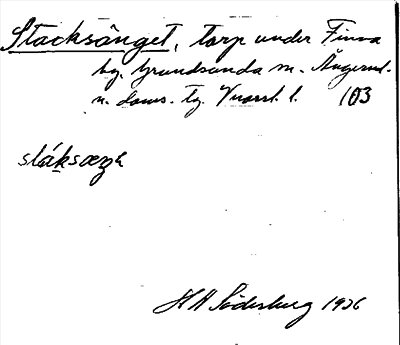 Stacksänget, torp under Finna
by. Grundsunda sn. Ångerml.
n. doms. tg. Vnorrl. l. 103
stáksæŋə
H H Söderberg 1926